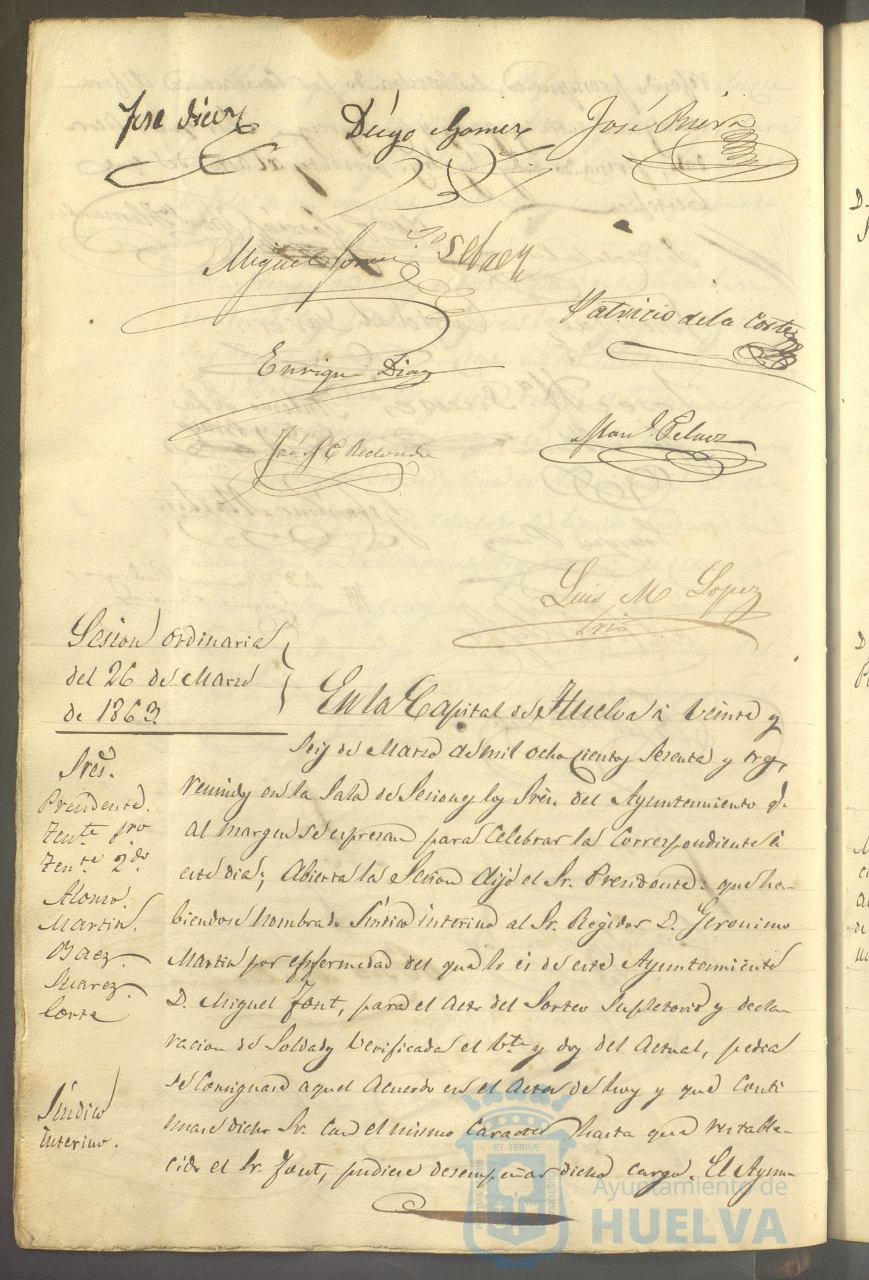 José Diaz
Diego Gomez
José Riera
Miguel Gomez
Jo Selaez
Patricio de la Corte
Enrique Diaz
José M E Redondo
Man.l Pelaez
Luis M Lopez
Srio
Sesion ordinaria
del 26 de Marzo
de 1863.
En la Capital de Huelva á veinte y
seis de Marzo de mil ochocientos sesenta y tres,
reunidos en la Sala de Sesiones los Sres. del Ayuntamiento q.
al margen se espresan para celebrar la correspondiente á
este dia; Abierta la Sesion dijo el Sr. Presidente: que ha-
biendose nombrado Síndico interino al Sr. Regidor D. Geronimo
Martin por enfermedad del que lo és de este Ayuntamiento
D. Miguel Font, para el acto del Sorteo Supletorio y decla-
racion de Soldados verificada el veinte y dos del actual, pedia
se consignara aquel acuerdo en el acta de hoy y que conti
nuase dicho Sr. con el mismo caracter hasta que restable-
cido el Sr. Font, pudiese desempeñar dicho cargo. El Ayun-
Sres.
Presidente.
Tente pro
Tente 2do
Alonso.
Martin.
Baez.
Suarez.
Corte
Síndico
interino.
ET TERRAE
Ayuntamiento de
HUELVA